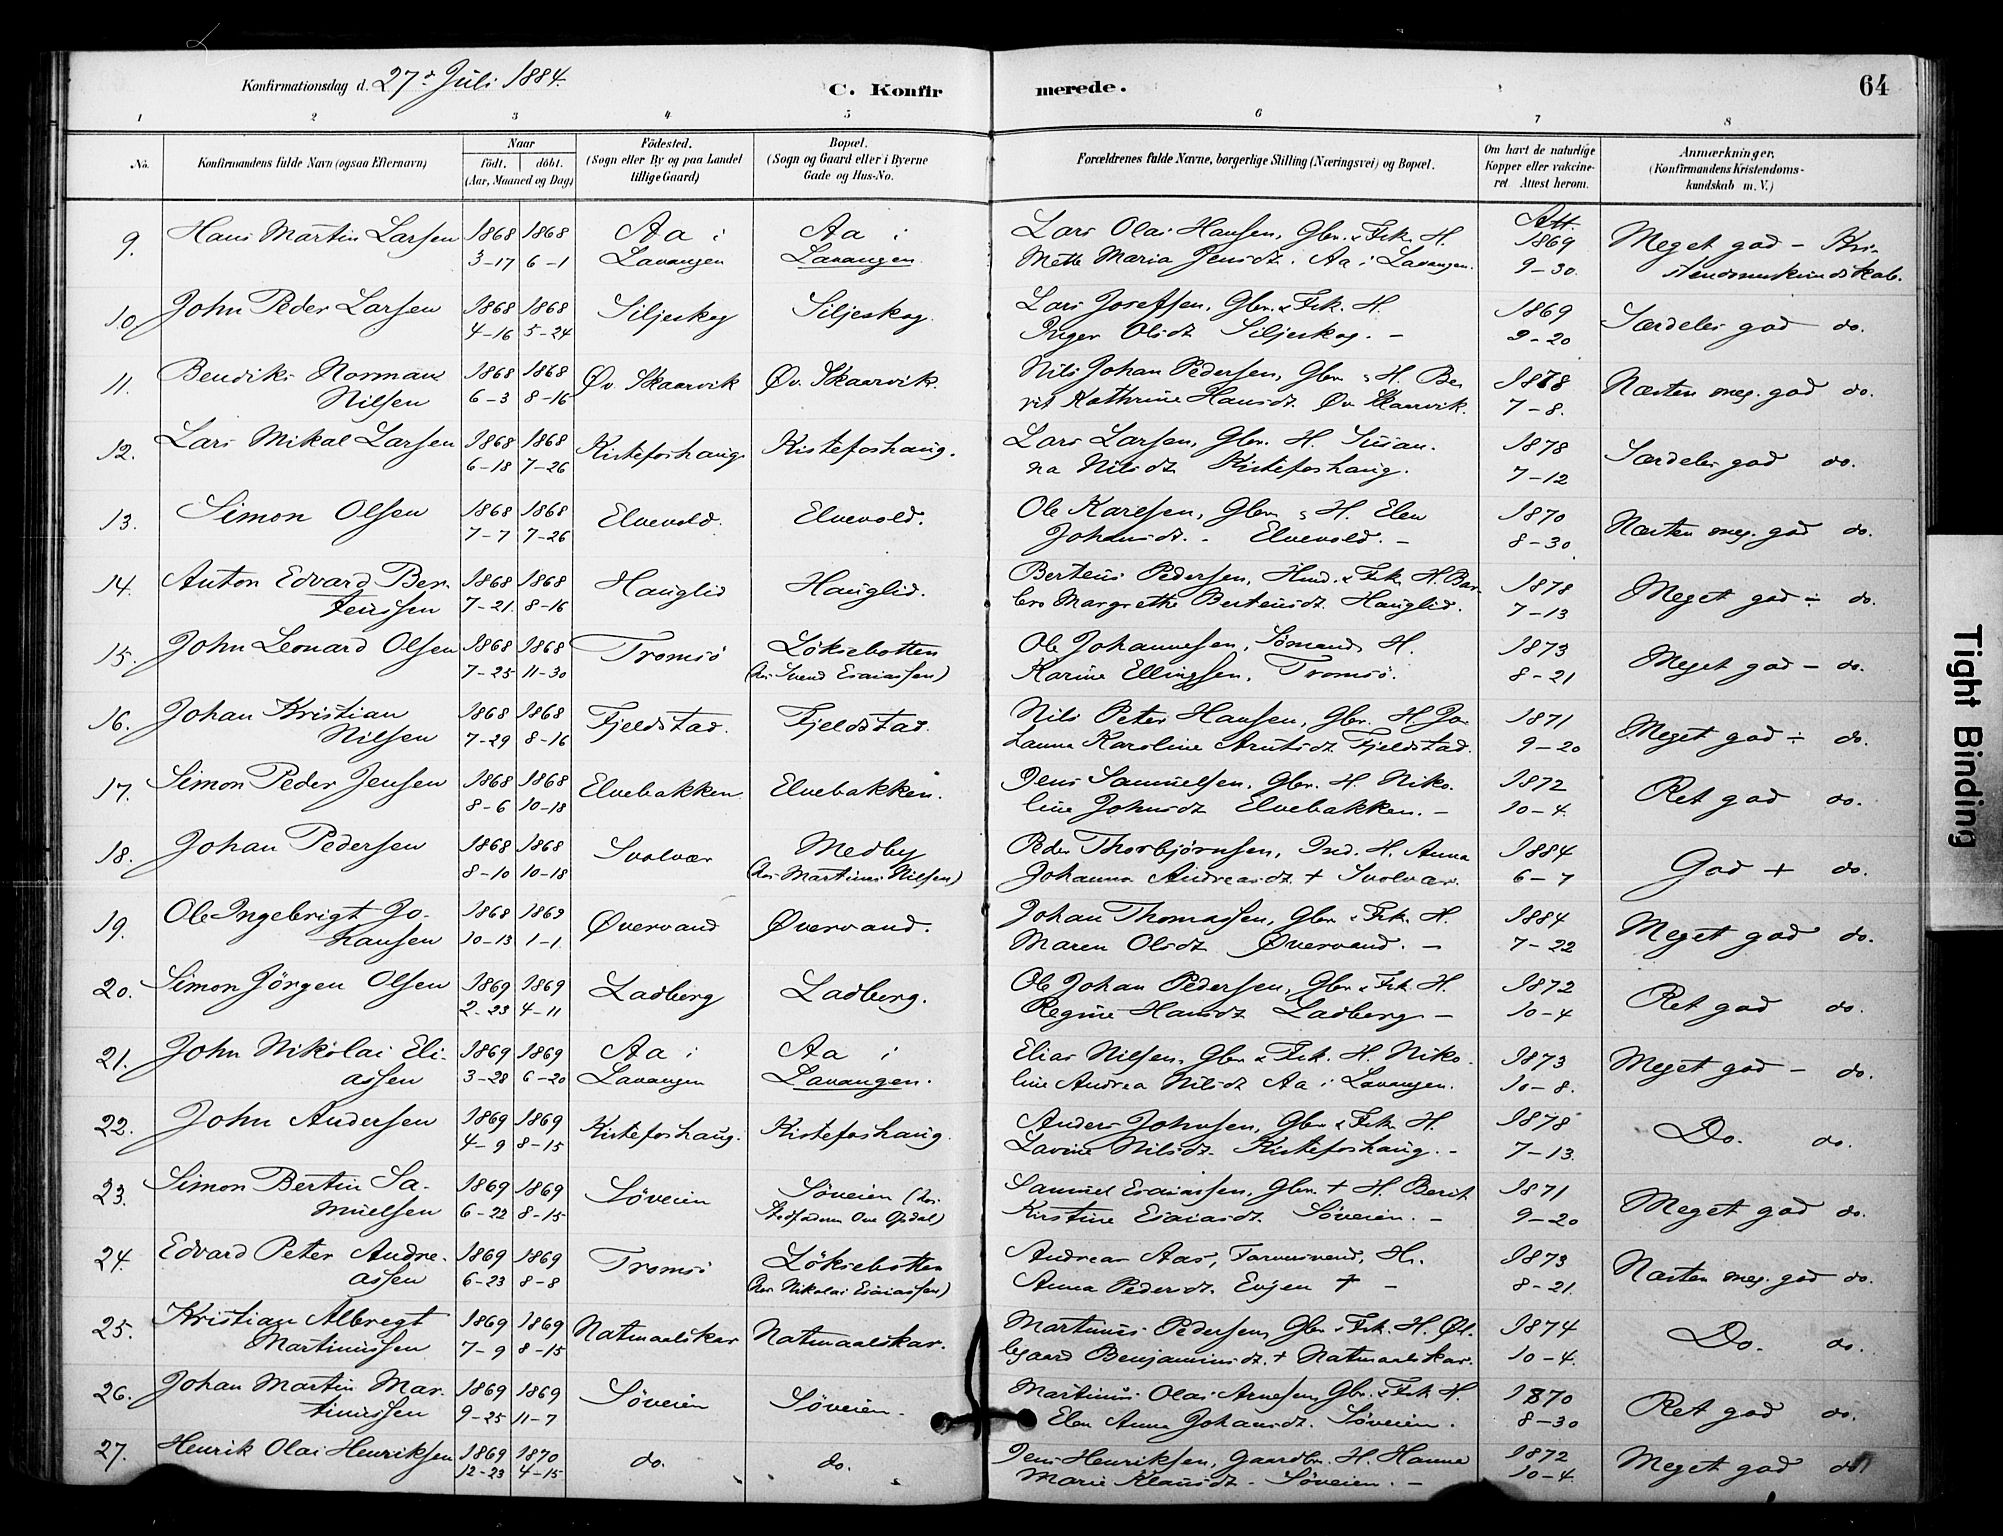 Konfirmationsdag d. 27de Juli 1884.
C. Konfirmerede.
64
1 2 3 4 5 6 7 8
No.
Konfirmandens fulde Navn (ogsaa Efternavn)
Naar
födt. döbt.
(Aar, Maaned og Dag)
Födested.
(Sogn eller By og paa Landet
tillige Gaard)
Bopæl.
(Sogn og Gaard eller i Byerne
Gade og Hus-No.
Forældrenes fulde Navne, borgerlige Stilling (Næringsvei) og Bopæl.
Om havt de naturlige
Kopper eller vakcine-
ret. Attest herom.
Anmærkninger.
(Konfirmandens Kristendoms-
kundskab m. V.)
9. Hans Martin Larsen 1868 1868 Aa i Aa i Lars Olai Hansen, Gbr. & Fisk. H. Att. 1869 Meget god – Kri-
3-17 6-1 Lavangen Lavangen. Mette Maria Jensdt. Aa i Lavangen. 9-30. stendomskundskab.
10. John Peder Larsen 1868 1868 Siljeskog Siljeskog. Lars Josefsen, Gbr. & Fisk. H. 1869 Særdeles god do.
4-16 5-24 Inger Olsdt. Siljeskog. – 9-20
11. Bendiks Norman 1868 1868 Øv. Skaarvik Øv. Skaarvik. Nils Johan Pedersen, Gbr. & H. Be- 1878 Næsten meg. god do.
Nilsen 6-3 8-16 rit Kathrine Hansdt. Øv. Skaarvik. 7-8.
12. Lars Mikal Larsen 1868 1868 Kistefoshaug Kistefoshaug. Lars Larsen, Gbr. H. Susan- 1878 Særdeles god do.
6-18 7-26 na Nilsdt. Kistefoshaug. 7-12
13. Simon Olsen 1868 1868 Elvevold. Elvevold. Ole Karlsen, Gbr. & H. Elen 1870 Næsten meg. god do.
7-7 7-26 Johansdt. – Elvevold. – 8-30.
14. Anton Edvard Ber- 1868 1868 Hauglid Hauglid. Berteus Pedersen, Husd. & Fisk. H. Bar- 1878 Meget god ÷ do.
teussen 7-21. 8-16 bro Margrethe Berteusdt. Hauglid. 7-13
15. John Leonard Olsen 1868 1868 Tromsö Löksebotten Ole Johannesen, Sömand, H. 1873 Meget god – do.
7-25 11-30 (hos Svend Esaiassen) Karine Ellingsen, Tromsö. 8-21
16. Johan Kristian 1868 1868 Fjeldstad. Fjeldstad. Nils Peter Hansen, Gbr. H. Jo- 1871 Meget god ÷ do.
Nilsen 7-29 8-16 hanna Karoline Arntsdt. Fjeldstad. 9-20
17. Simon Peder Jensen 1868 1868 Elvebakken. Elvebakken. Jens Samuelsen, Gbr. H. Niko- 1872 Ret god do.
8-6 10-18 line Johnsdt. Elvebakken. – 10-4.
18. Johan Pedersen 1868 1868 Svolvær Medby Peder Thorbjørnsen, Ind. H. Anna 1884 God + do.
8-10 10-18 (hos Martinus Nilsen) Johanna Andreasdt. + Svolvær. 6-7
19. Ole Ingebrigt Jo- 1868 1869 Øvervand Øvervand. Johan Thomassen, Gbr. & Fisk. H. 1884 Meget god do.
hansen 10-13 1-1. Maren Olsdt. Øvervand. – 7-22
20. Simon Jörgen Olsen 1869 1869 Ladberg Ladberg. Ole Johan Pedersen, Gbr. & Fisk. H. 1872 Ret god do.
2-23 4-11 Regine Hansdt. Ladberg – 10-4
21. John Nikolai Eli- 1869 1869 Aa i Aa i Elias Nilsen, Gbr. & Fisk. H. Niko- 1873 Meget god – do.
assen 3-28 6-20 Lavangen Lavangen. line Andrea Nilsdt. Aa i Lavangen. 10-8.
22. John Andersen 1869 1869 Kistefoshaug. Kistefoshaug. Anders Johnsen, Gbr. & Fisk. H. 1878 Do. do.
4-9 8-15 Lavine Nilsdt. Kistefoshaug. – 7-13.
23. Simon Bertin Sa- 1869 1869 Söveien Söveien (hos Samuel Esaiassen, Gbr. + H. Berit 1871 Meget god do.
muelsen 6-22 8-15 Stedfaderen Ove Opdal) Kirstine Esaiasdt. Söveien. – 9-20
24. Edvard Peter Andre- 1869 1869 Tromsö Löksebotten Andreas Aas, Farversvend, H. 1873 Næsten meg. god do.
assen 6-23 8-8 (hos Nikolai Esaiassen) Anna Pedersdt. Evjen + – 8-21.
25. Kristian Albregt 1869 1869 Natmaalskar Natmaalskar. Martinus Pedersen, Gbr. & Fisk. H. Øl- 1874 Do. do.
Martinussen 7-9 8-15 legaard Benjaminsdt. + Natmaalskar. 10-4.
26. Johan Martin Mar- 1869 1869 Söveien Söveien. Martinus Olai Arnesen, Gbr. & Fisk. H. 1870 Ret god do.
tinussen 9-25 11-7 Elen Anna Johansdt. Söveien. 8-30
27. Henrik Olai Henriksen 1869 1870 do. do. Jens Henriksen, Gaardbr. H. Hanna 1872 Meget god do.
12-23 4-15 Marie Klausdt. – Söveien. – 10-4.
Tight Binding